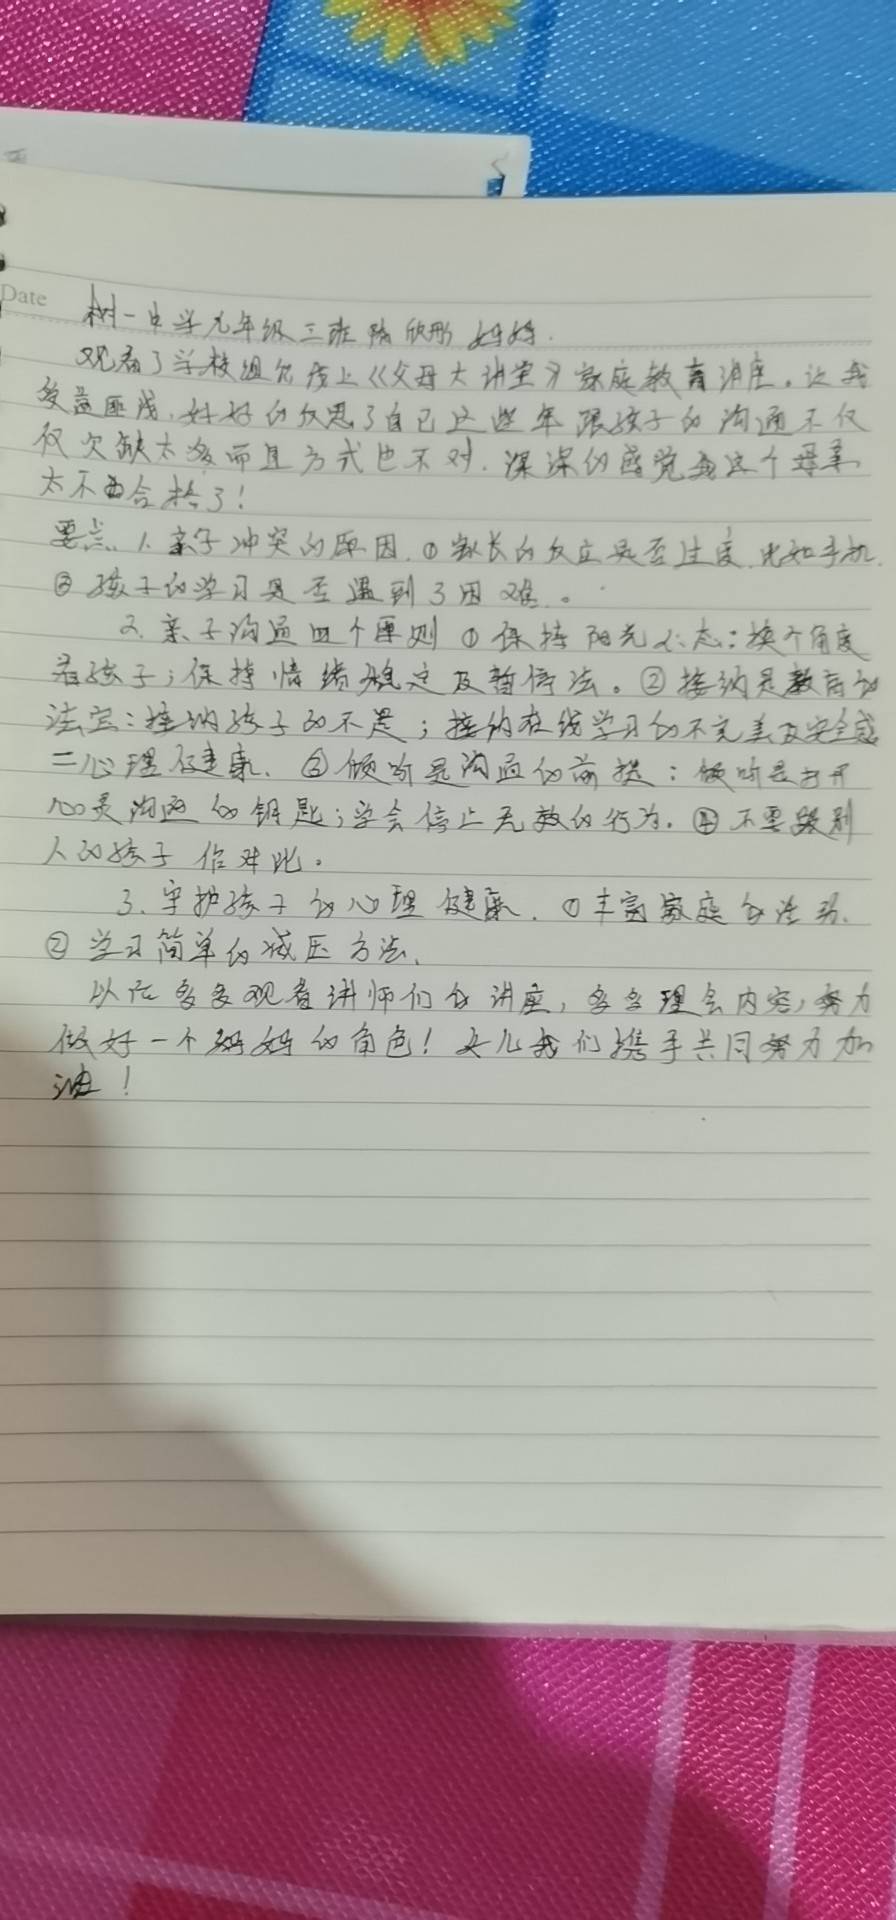 Date
树一中学九年级三班 欣彤 妈妈.
观看了学校组织线上《父母大讲堂》家庭教育讲座。让我
受益匪浅,好好的反思了自己这些年跟孩子的沟通不仅
仅欠缺太多而且方式也不对.深深的感觉我这个母亲
太不合格了!
要点.1.亲子冲突的原因.①家长的反应是否过度.比如手机.
②孩子的学习是否遇到了困难。
2.亲子沟通四个原则 ①保持阳光心态:换个角度
看孩子;保持情绪稳定及暂停法。②接纳是教育的
法宝:接纳孩子的不足;接纳在线学习的不完美及安全感
=心理健康.③倾听是沟通的前提:倾听是打开
心灵沟通的钥匙;学会停止无效的行为.④不要跟别
人的孩子作对比。
3.守护孩子的心理健康.①丰富家庭的活动.
②学习简单的减压方法.
以后多多观看讲师们的讲座,多多理会内容,努力
做好一个妈妈的角色!女儿我们携手共同努力加
油!